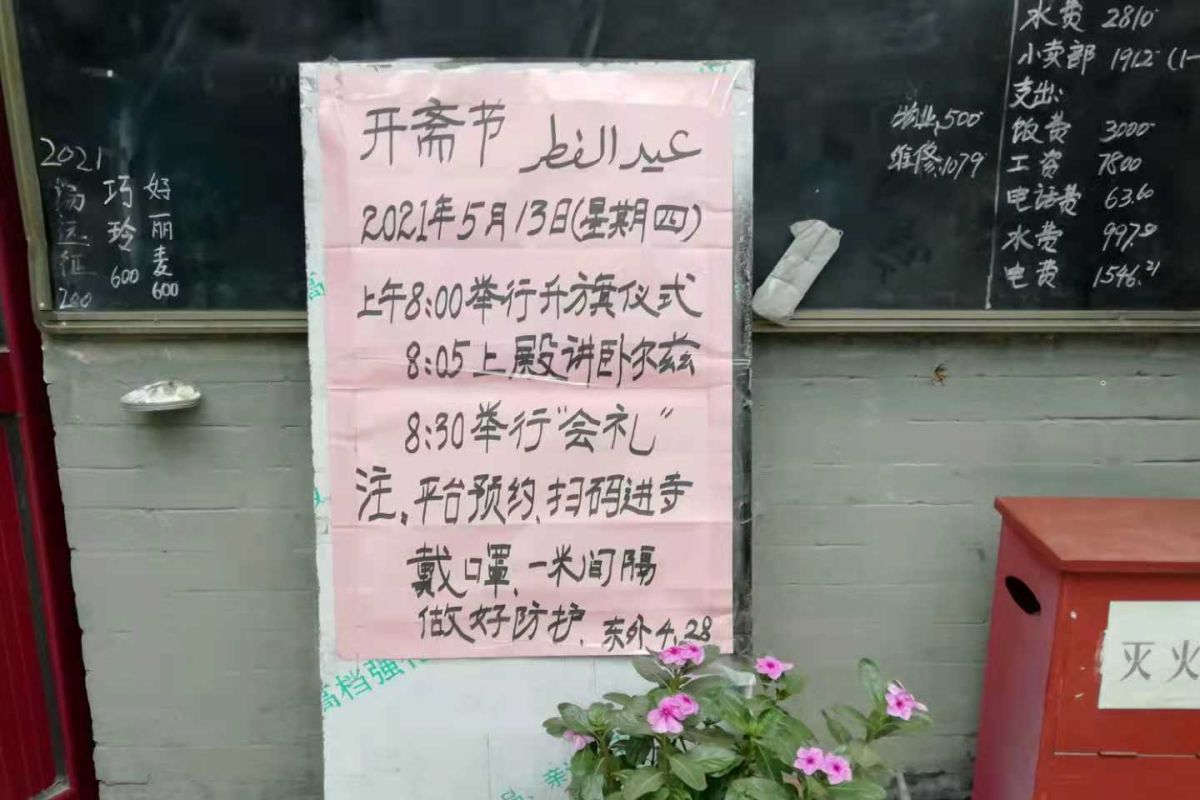 开斋节 عيد الفطر
2021年5月13日(星期四)
上午8:00举行升旗仪式
8:05上殿讲卧尔兹
8:30举行"会礼"
注。平台预约、扫码进寺
戴口罩、一米间隔
做好防护、东外4.28
2021
汤远征 200
巧玲 600
好丽麦 600
物业,500
维修,1079
水费 2810
小卖部 1912 (1-
支出:
饭费 3000
工资 7800
电话费 63.60
水费
电费 1546.21
高档强
灭火